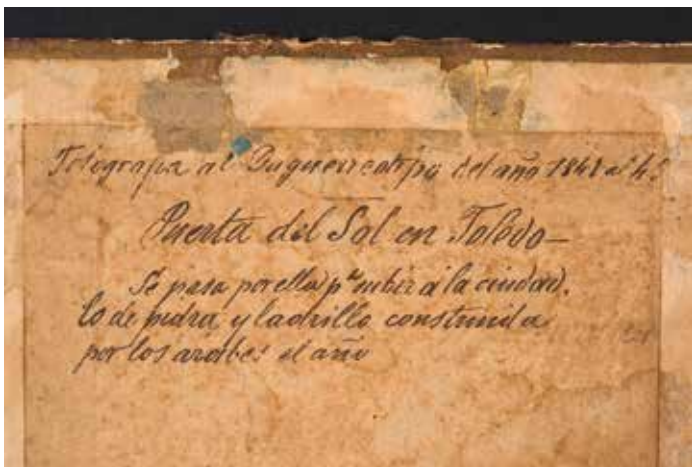 Fotografia al Daguerreotipo del año 184
Puerta del Sol en Toledo—
Se pasa por ella pª subir á la ciudad.
Es de piedra y ladrillo construida
por los arabes el año